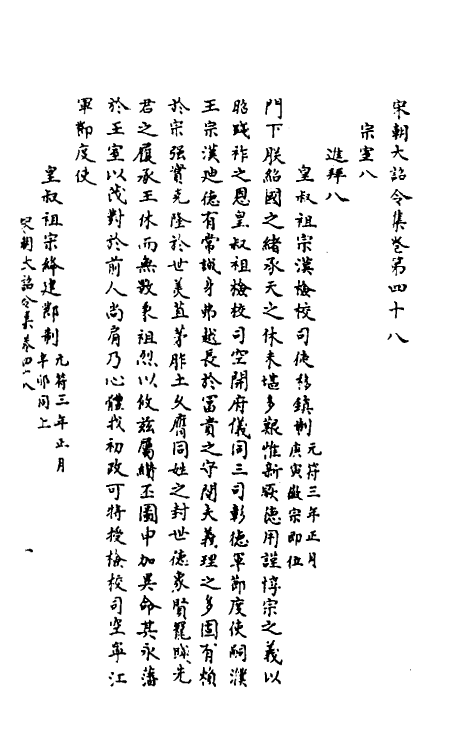 宋朝大詔令集卷第四十八
宗室八
進拜八
皇叔祖宗漢檢校司徒移鎮制元符三年正月庚寅徽宗即位
門下朕紹國之緒承天之休未堪多艱惟新厥德用謹惇宗之義以
昭踐祚之恩皇叔祖檢校司空開府儀同三司彰德軍節度使嗣濮
王宗漢迪德有常誠身弗越長於富貴之守閱夫義理之多固有賴
於宗強實克隆於世美苴茅胙土久膺同姓之封世德象賢寵賤先
君之履承王休而無斁秉祖烈以攸茲屬纘丕圖申加異命其永藩
於王室以茂對於前人尚肩乃心體我初政可特授檢校司空寧江
軍節度使
皇叔祖宗絳建鄴制元符三年正月辛卯同上
宋朝大詔令集卷四十八
一